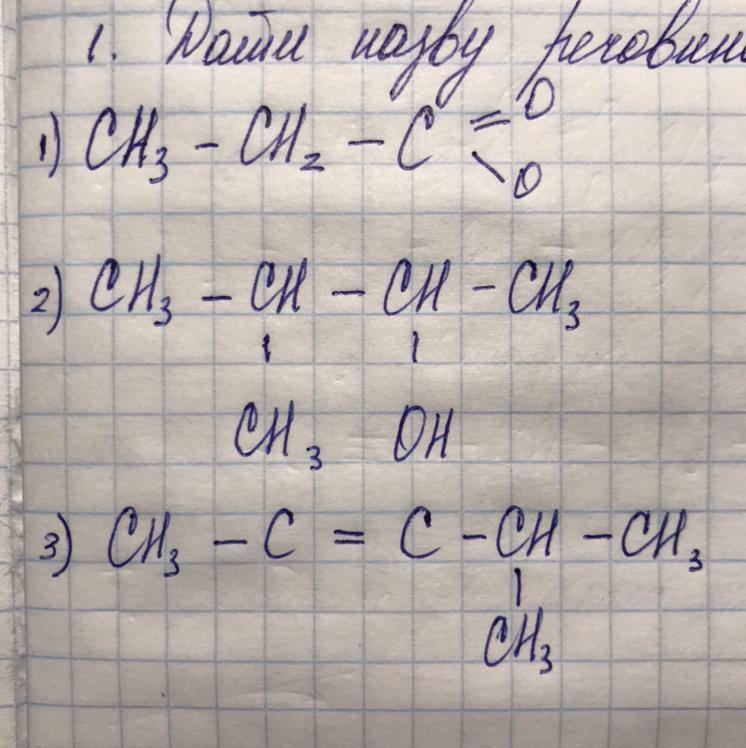 1. Дати назву речовин
1) CH₃ – CH₂ – C =O
\O
2) CH₃ – CH – CH – CH₃
CH₃ OH
3) CH₃ – C = C – CH – CH₃
CH₃